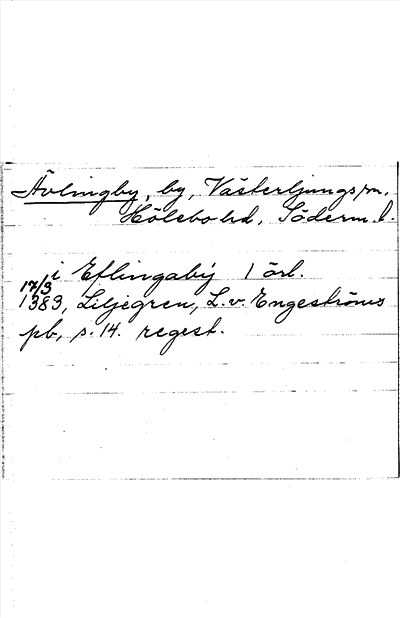 Ävlingby, by, Västerljungs sn,
Hölebo hd, Söderm. l.
i Eflingaby 1 örl.
17/3
1383, Liljegren, L. v. Engeströms
pb, s. 14. regest.